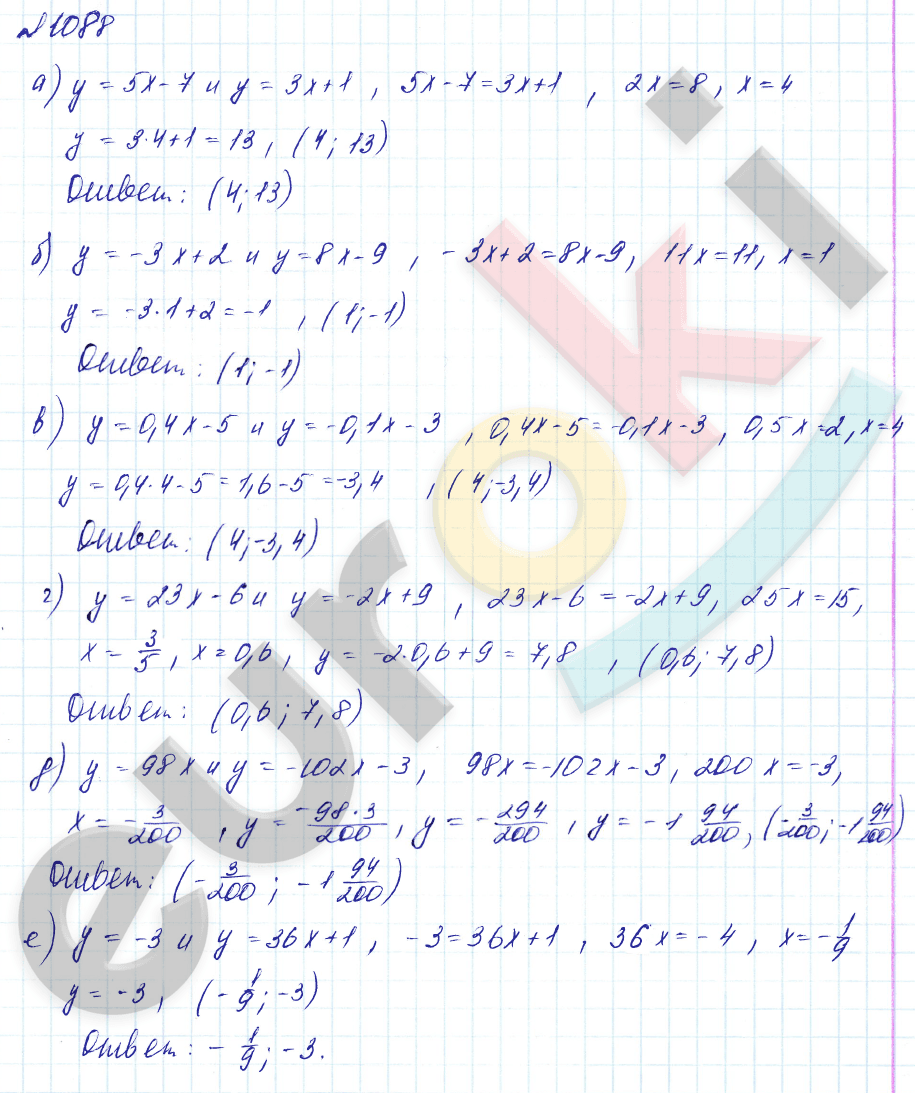 №1088
а) y = 5x-7 и y = 3x+1 , 5x-7=3x+1 , 2x=8, x=4
y = 3·4+1=13, (4; 13)
Ответ: (4;13)
б) y = -3x+2 и y=8x-9 , -3x+2=8x-9, 11x=11, x=1
y = -3·1+2=-1 , (1;-1)
Ответ: (1;-1)
в) y=0,4x-5 и y=-0,1x-3 , 0,4x-5=-0,1x-3 , 0,5x=2, x=4
y=0,4·4-5=1,6-5=-3,4 , (4;-3,4)
Ответ: (4;-3,4)
г) y=23x-6 и y=-2x+9 , 23x-6=-2x+9, 25x=15,
x = 3/5 , x=0,6, y = -2·0,6+9=7,8 , (0,6; 7,8)
Ответ: (0,6; 7,8)
д) y=98x и y=-102x-3, 98x=-102x-3, 200x=-3,
x = -3/200 , y = -98·3/200 , y = -294/200 , y = -1 94/200 , (-3/200; -1 94/200)
Ответ: (-3/200; -1 94/200)
е) y = -3 и y =36x+1 , -3=36x+1 , 36x=-4 , x=-1/9
y = -3, (-1/9; -3)
Ответ: -1/9; -3.
euroki